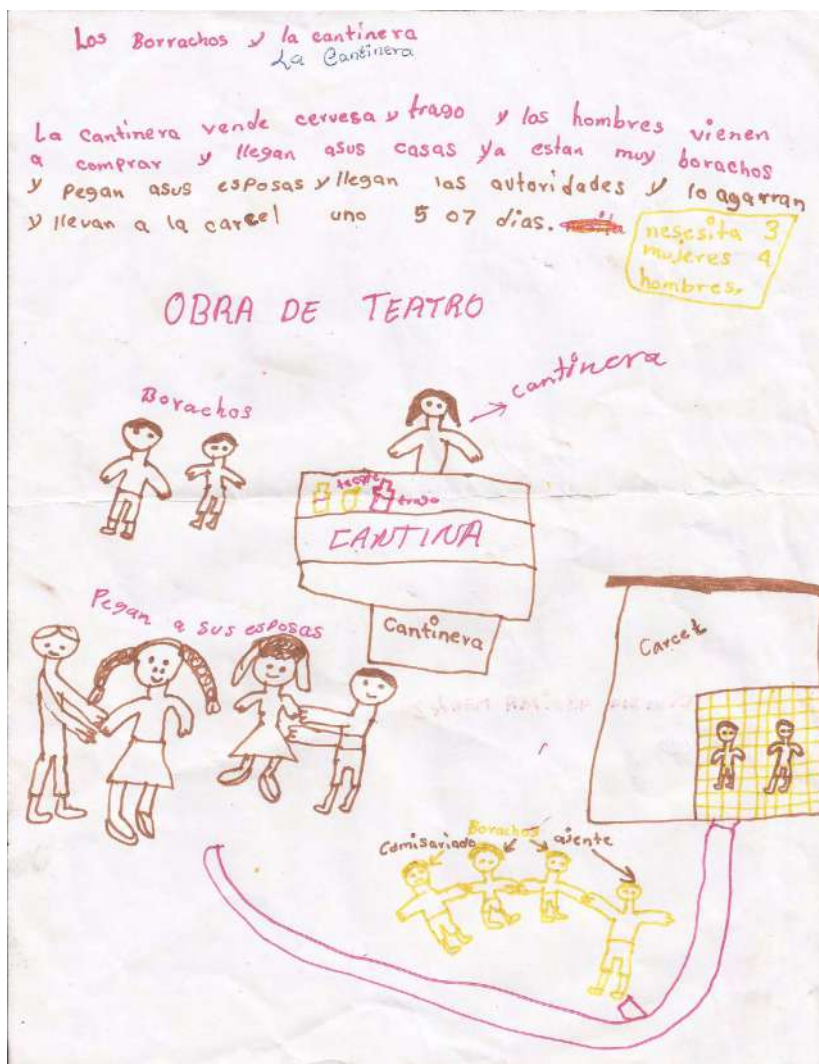 Los Borrachos y la cantinera
La Cantinera
La cantinera vende cervesa y trago y los hombres vienen
a comprar y llegan asus casas ya estan muy borachos
y pegan asus esposas y llegan las autoridades y lo agarran
y llevan a la carcel uno 5 o7 dias.
nesesita 3
mujeres 4
hombres,
OBRA DE TEATRO
Borachos
cantinera
trago
CANTINA
Cantinera
Pegan a sus esposas
Carcel
Borachos
Comisariado
ajente